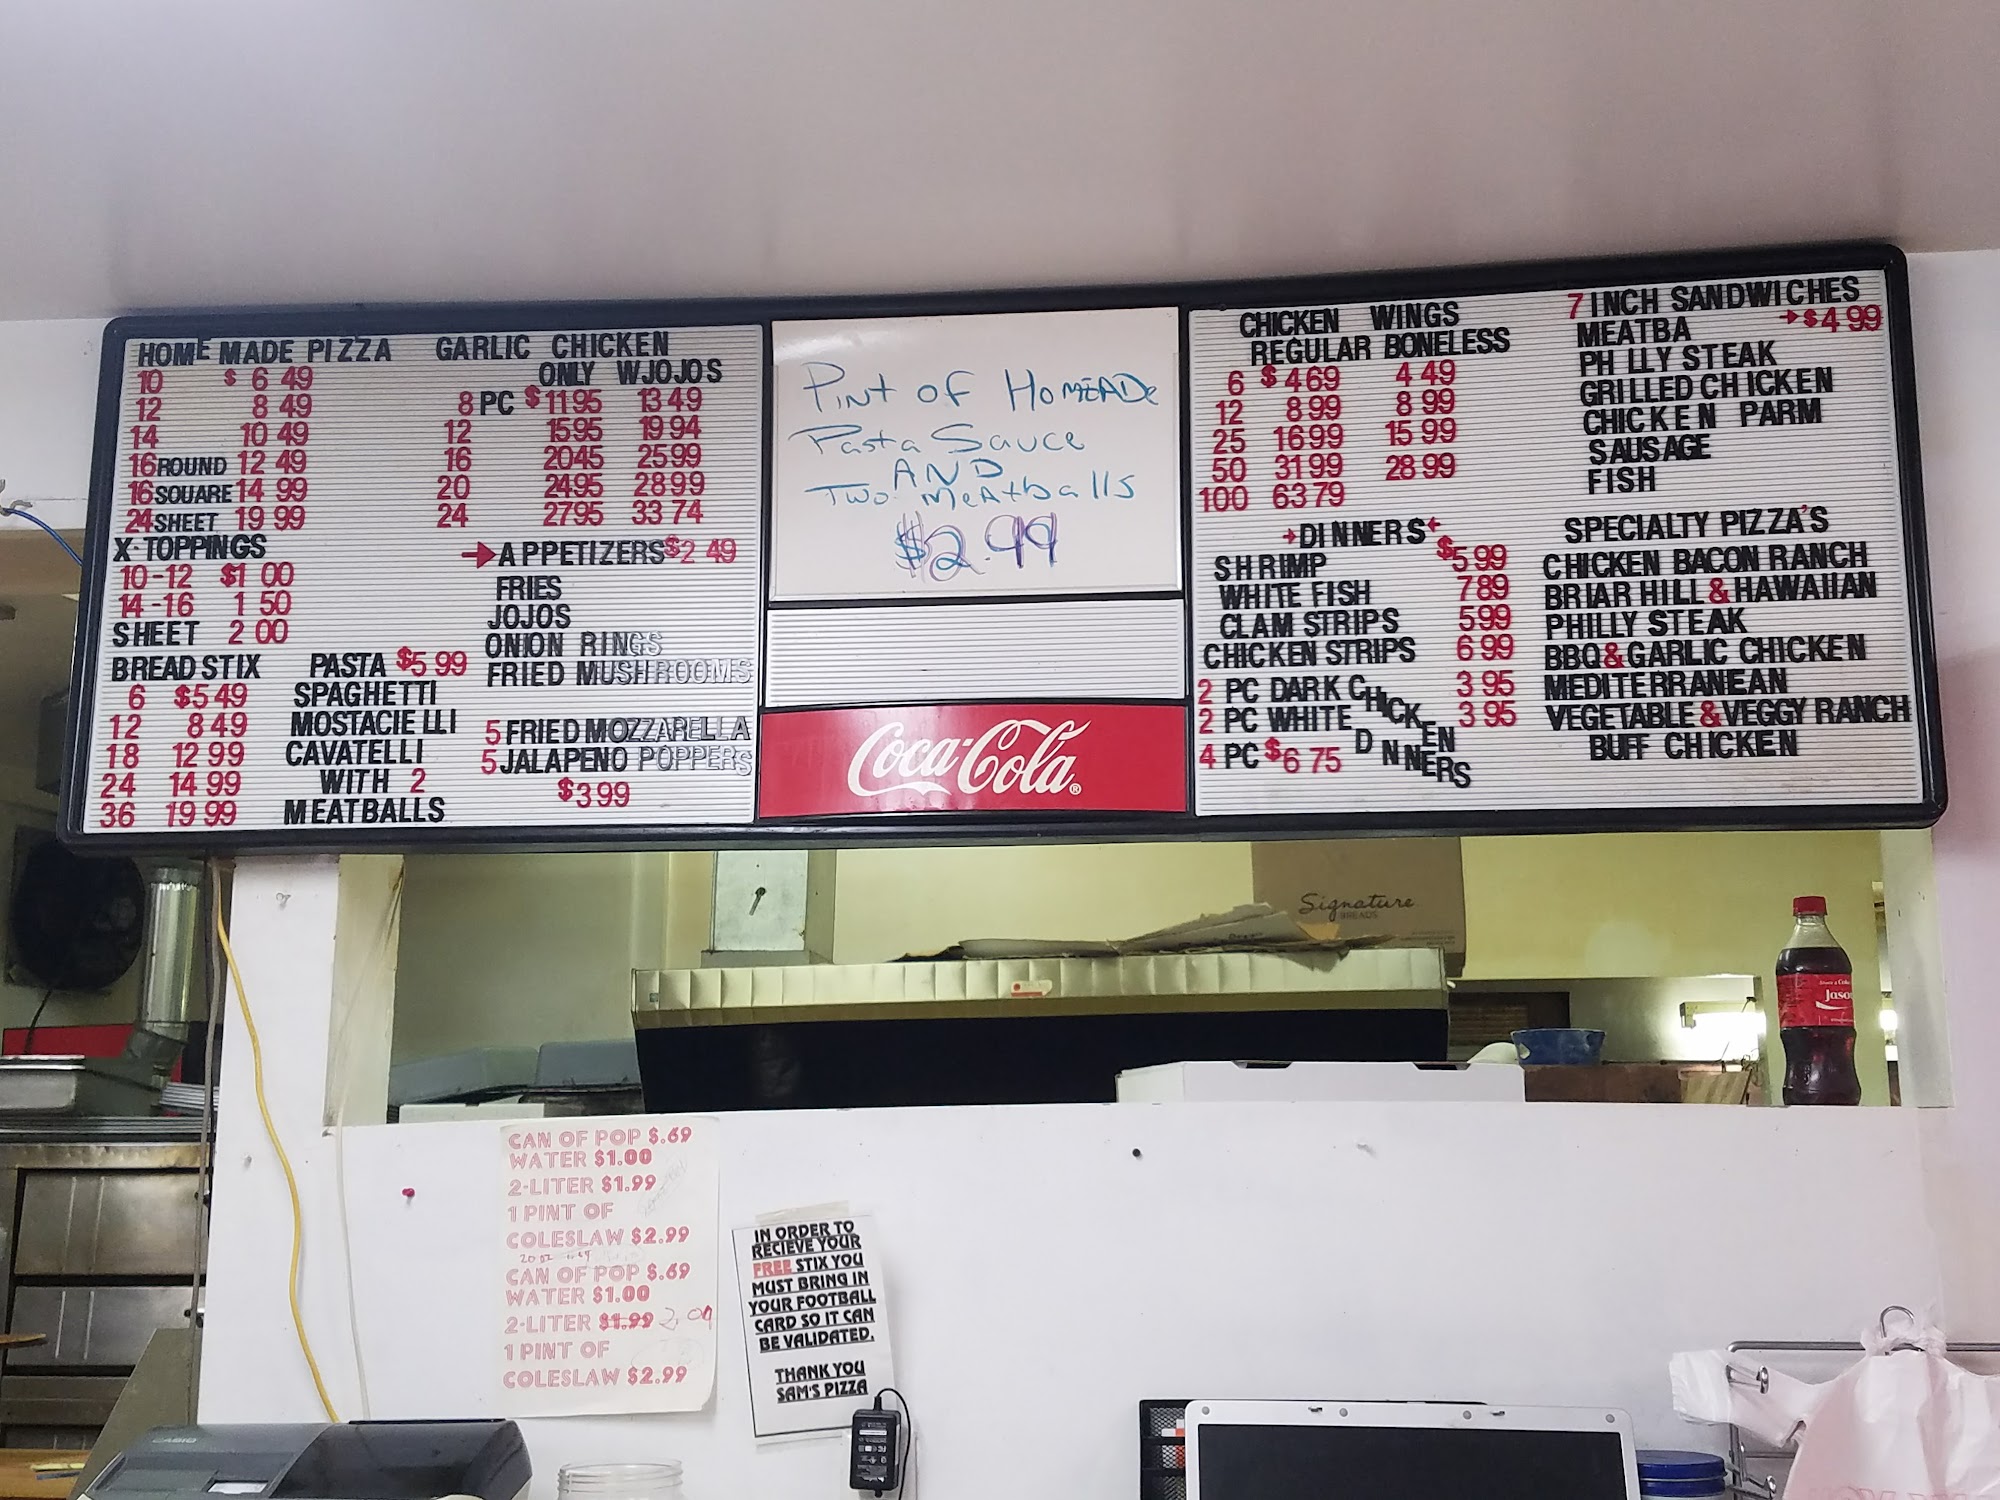 HOME MADE PIZZA
10 $ 6 49
12 8 49
14 10 49
16 ROUND 12 49
16 SQUARE 14 99
24 SHEET 19 99
X-TOPPINGS
10-12 $1 00
14-16 1 50
SHEET 2 00
BREAD STIX
6 $5 49
12 8 49
18 12 99
24 14 99
36 19 99
GARLIC CHICKEN
ONLY WJOJOS
8 PC $11 95 13 49
12 15 95 19 94
16 20 45 25 99
20 24 95 28 99
24 27 95 33 74
APPETIZERS $2 49
FRIES
JOJOS
ONION RINGS
FRIED MUSHROOMS
5 FRIED MOZZARELLA
5 JALAPENO POPPERS
$3 99
PASTA $5 99
SPAGHETTI
MOSTACIELLI
CAVATELLI
WITH 2
MEATBALLS
Pint of Homeade
Pasta Sauce
AND
Two Meatballs
$2.99
Coca-Cola®
CHICKEN WINGS
REGULAR BONELESS
6 $4 69 4 49
12 8 99 8 99
25 16 99 15 99
50 31 99 28 99
100 63 79
→DINNERS←
SHRIMP $5 99
WHITE FISH 7 89
CLAM STRIPS 5 99
CHICKEN STRIPS 6 99
2 PC DARK 3 95
2 PC WHITE 3 95
4 PC $6 75
CHICKEN
DINNERS
7 INCH SANDWICHES
MEATBA →$4 99
PHILLY STEAK
GRILLED CHICKEN
CHICKEN PARM
SAUSAGE
FISH
SPECIALTY PIZZA'S
CHICKEN BACON RANCH
BRIAR HILL & HAWAIIAN
PHILLY STEAK
BBQ & GARLIC CHICKEN
MEDITERRANEAN
VEGETABLE & VEGGY RANCH
BUFF CHICKEN
Signature
BREADS
Jason
CAN OF POP $.69
WATER $1.00
2-LITER $1.99
1 PINT OF
COLESLAW $2.99
20 oz
CAN OF POP $.69
WATER $1.00
2-LITER $1.99 2.09
1 PINT OF
COLESLAW $2.99
IN ORDER TO
RECIEVE YOUR
FREE STIX YOU
MUST BRING IN
YOUR FOOTBALL
CARD SO IT CAN
BE VALIDATED.
THANK YOU
SAM'S PIZZA
CASIO